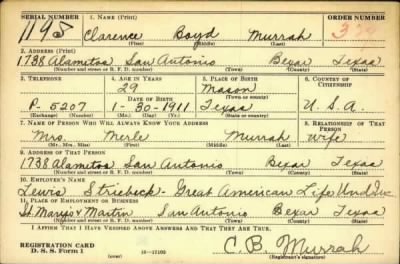 SERIAL NUMBER 1. NAME (Print) ORDER NUMBER
1195 Clarence Boyd Murrah
(First) (Middle) (Last)
2. ADDRESS (Print)
1738 Alametos San Antonio Bexar Texas
(Number and street or R. F. D. number) (Town) (County) (State)
3. TELEPHONE 4. AGE IN YEARS 5. PLACE OF BIRTH 6. COUNTRY OF CITIZENSHIP
29 Mason
DATE OF BIRTH (Town or county)
P-5207 1-30-1911 Texas U.S.A.
(Exchange) (No.) (Mo.) (Day) (Yr.) (State or country)
7. NAME OF PERSON WHO WILL ALWAYS KNOW YOUR ADDRESS 8. RELATIONSHIP OF THAT PERSON
Mrs. Merle Murrah Wife
(Mr., Mrs., Miss) (First) (Middle) (Last)
9. ADDRESS OF THAT PERSON
1738 Alametos San Antonio Bexar Texas
(Number and street or R. F. D. number) (Town) (County) (State)
10. EMPLOYER'S NAME
Lewis Striebeck - Great American Life Und.
11. PLACE OF EMPLOYMENT OR BUSINESS
St. Marys & Martin San Antonio Bexar Texas
(Number and street or R. F. D. number) (Town) (County) (State)
I AFFIRM THAT I HAVE VERIFIED ABOVE ANSWERS AND THAT THEY ARE TRUE.
REGISTRATION CARD
D. S. S. Form 1 (over) C. B. Murrah
(Registrant's signature)